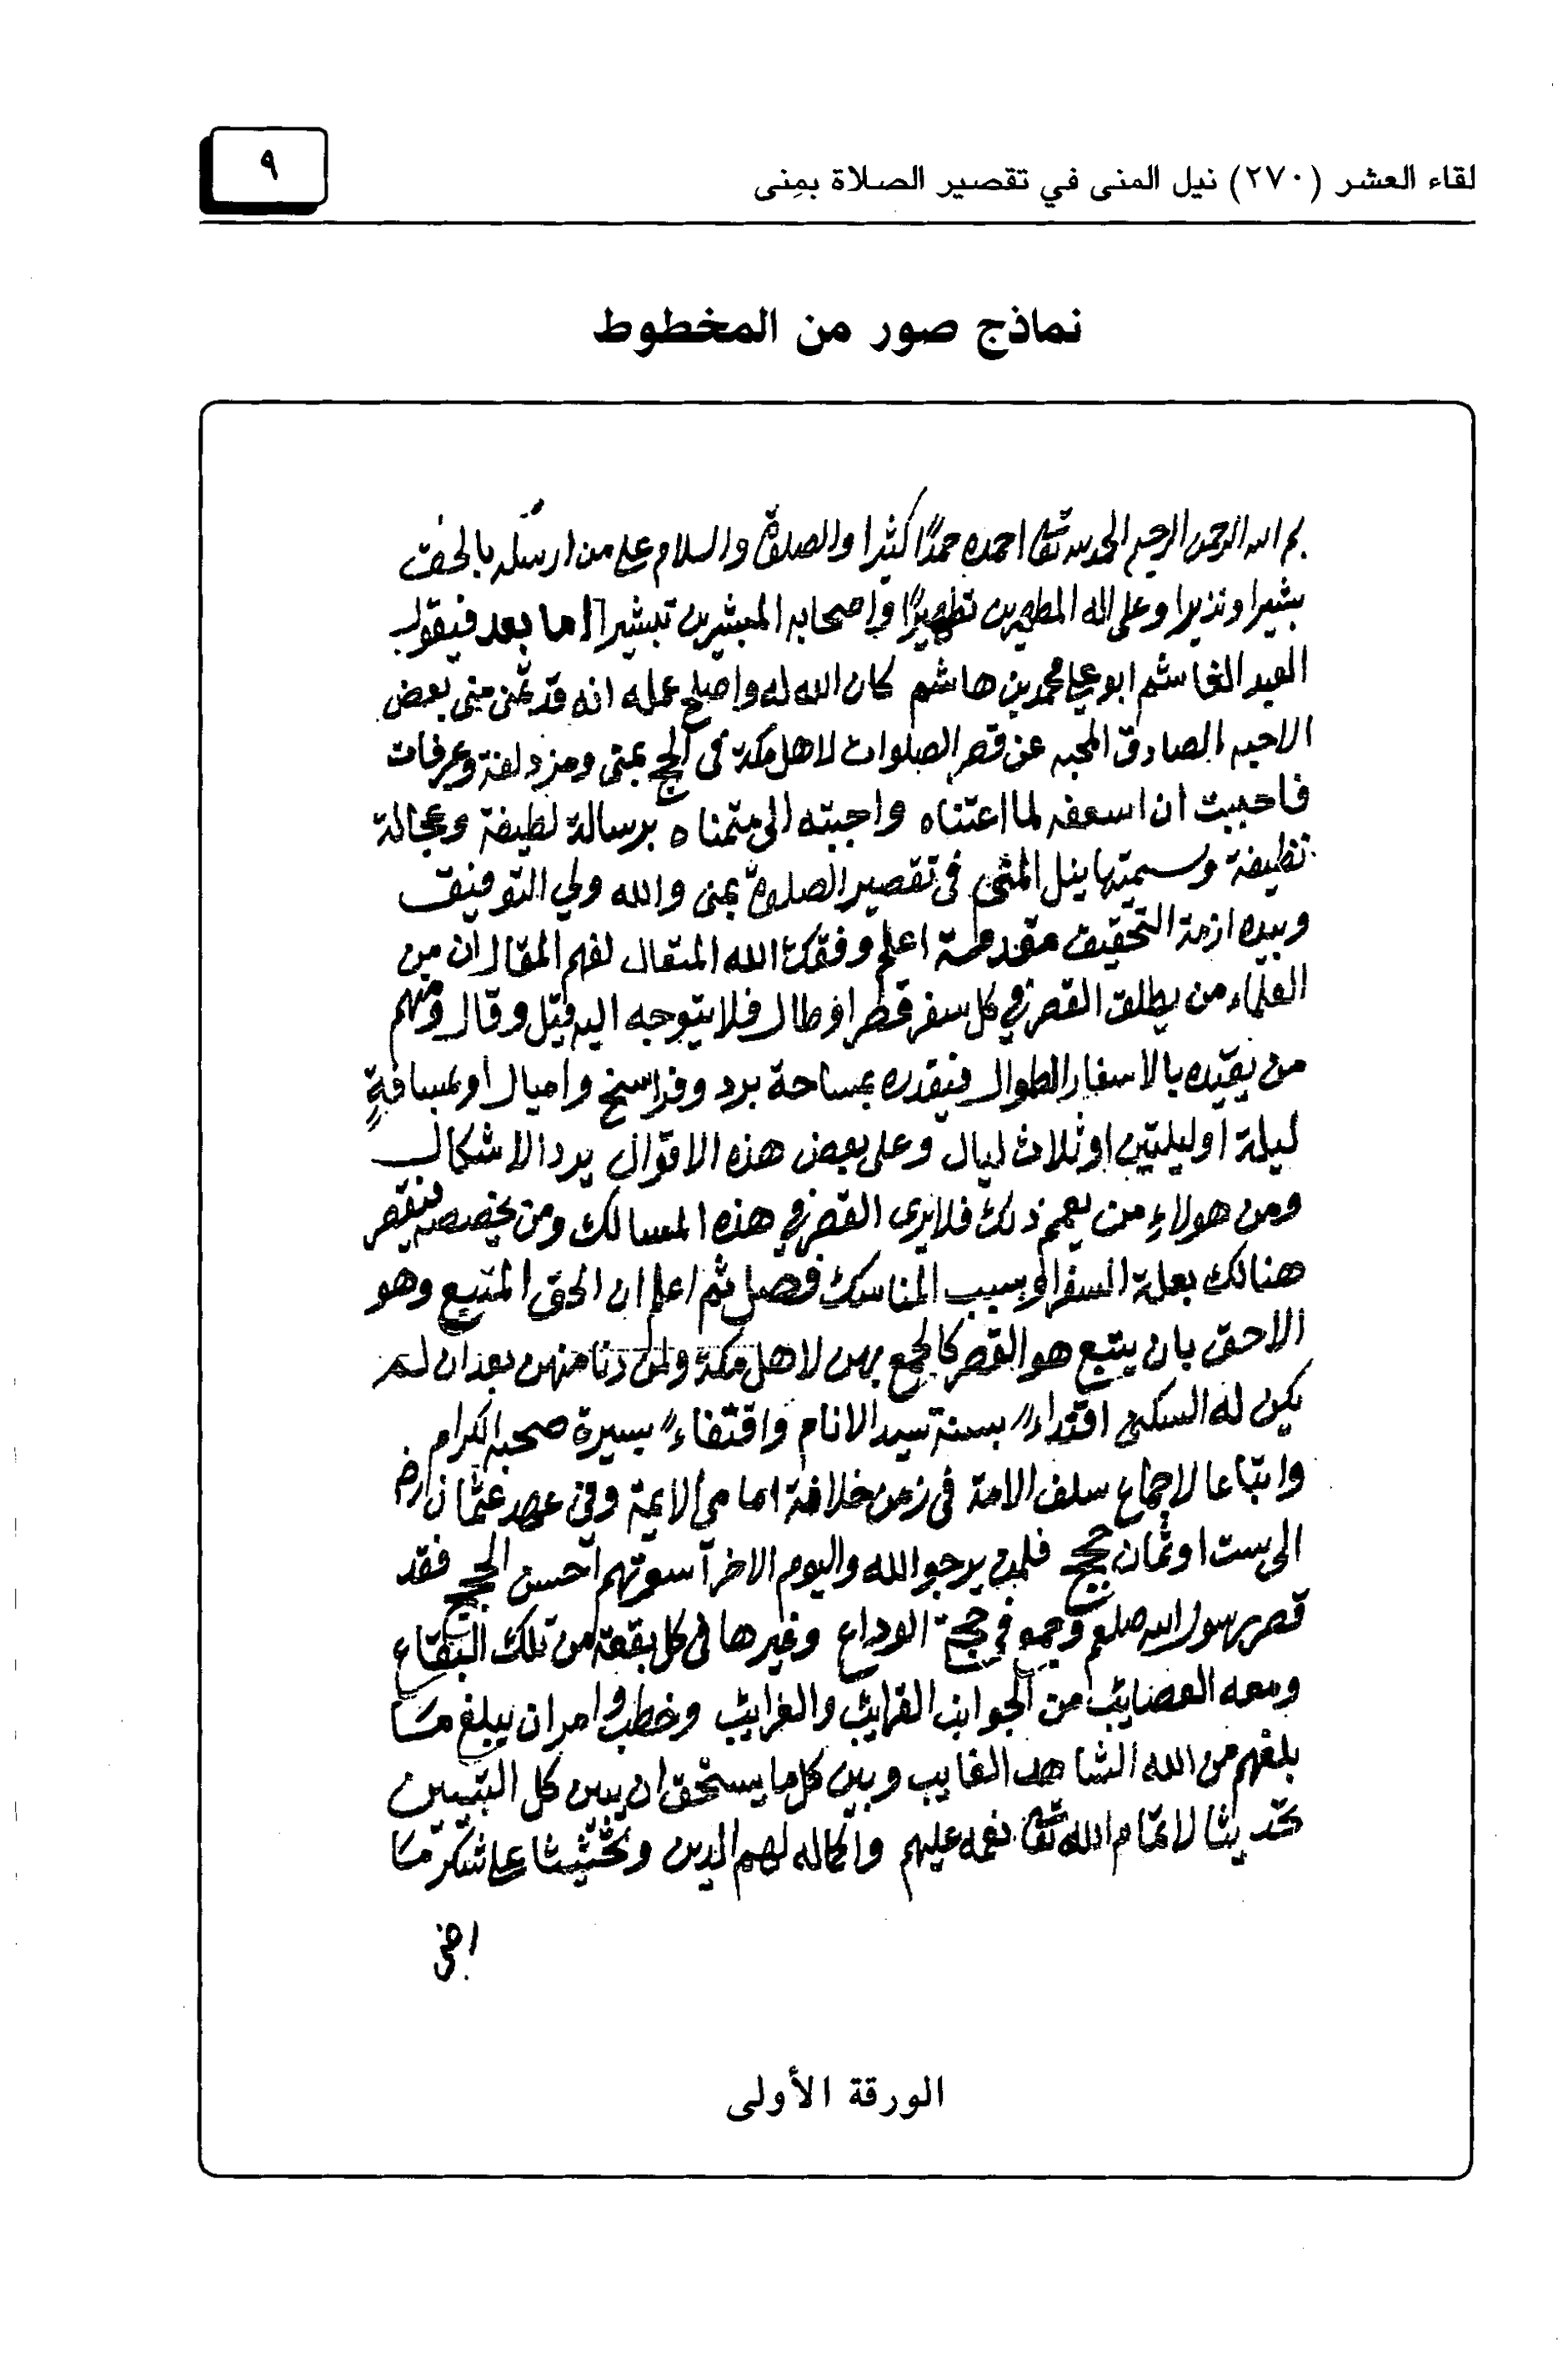 لقاء العشر (٢٧٠) نيل المنى في تقصير الصلاة بمِنى
٩
نماذج صور من المخطوط
بسم الله الرحمن الرحيم الحمد لله تعالى احمده حمدًا كثيرا والصلوة والسلام على من ارسله بالحق
بشيرا ونذيرا وعلى اله المطهرين تطهيرًا واصحابه المبشرين تبشيرا اما بعد فيقول
العبد القاسم ابو علي محمد بن هاشم كان الله له واصلح عمله انه قد تمنى مني بعض
الاحبه الصادق المحبه عن قصر الصلوات لاهل مكة في الحج بمنى ومزدلفة وعرفات
فاحببت ان اسعفه لما اعتناه واجبته الى متمناه برسالة لطيفة وعجالة
نظيفة وسميتها بنيل المنى في تقصير الصلوة بمنى والله ولي التوفيق
وبيده ازمة التحقيق مقدمة اعلم وفقك الله المتعال لفهم المقال ان من
العلماء من يطلق القصر في كل سفر قصر او طال فلا يتوجه اليه قيل وقال ومنهم
من يقيده بالاسفار الطوال فيقدره بمساحة برد وفراسخ واميال او بمسافةٍ
ليلة او ليلتين او ثلاث ليال وعلى بعض هذه الاقوال يرد الاشكال
ومن هولاءِ من يعمم ذلك فلا يرى القصر في هذه المسالك ومن يخصصه فيقصر
هنالك بعلة السفر او بسبب المناسك فصل ثم اعلم ان الحق المتبع وهو
الاحق بان يتبع هو القصر كالجمع بهن لاهل مكة ولمن دنا منهن بعد ان لم
يكن له السكنى اقتداءً بسنة سيد الانام واقتفاءً بسيرة صحبه الكرام
واتباعا لاجماع سلف الامة في زمن خلافة امامي الايمة وفي عهد عثمان رض
الى ست او ثمان حجج فلمن يرجو الله واليوم الاخر آسوتهم احسن الحجج فقد
قصر رسول الله صلعم وجمع في حجة الوداع وغيرها في كل بقعة من تلك البقاع
ومعه العصايب من الجوانب القرايب والغرايب وخطب وامر ان يبلغ ما
بلغهم من الله الشاهد الغايب وبين كل ما يستحق ان يبين كل التبيين
تحديثا لاتمام الله تعالى نعمه عليهم واكماله لهم الدين وتحثيثا على شكر ما
الورقة الأولى